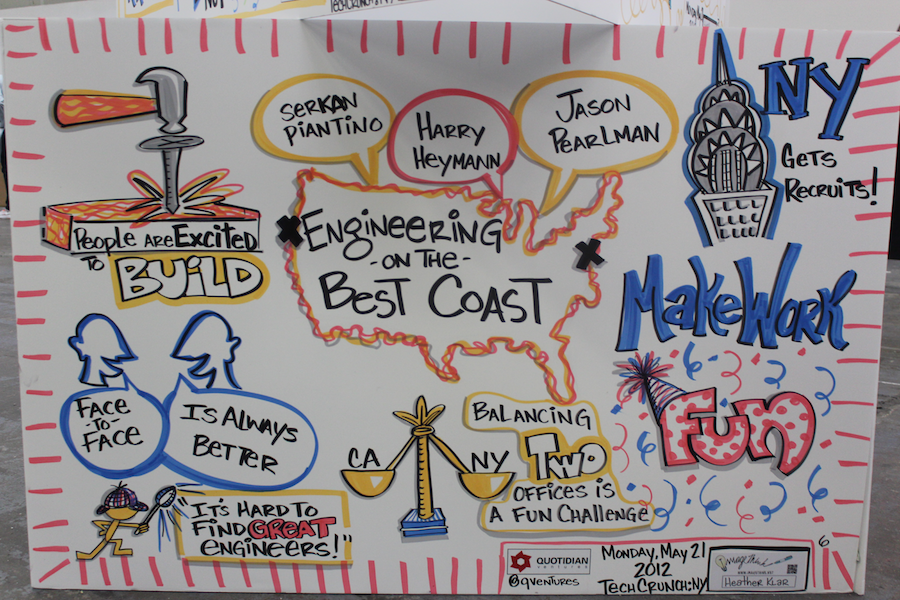 TECHCRUNCH:NY
SERKAN
PIANTINO
HARRY
HEYMANN
JASON
PEARLMAN
NY
GETS
RECRUITS!
PEOPLE ARE EXCITED
TO BUILD
ENGINEERING
-ON THE-
BEST COAST
MAKE WORK
FUN
FACE
-TO-
FACE
IS ALWAYS
BETTER
CA
NY
BALANCING
TWO
OFFICES IS
A FUN CHALLENGE
"IT'S HARD TO
FIND GREAT
ENGINEERS!"
QUOTIDIAN
ventures
@qventures
MONDAY, MAY 21
2012
TECHCRUNCH:NY
ImageThink
HEATHER KLAR
6